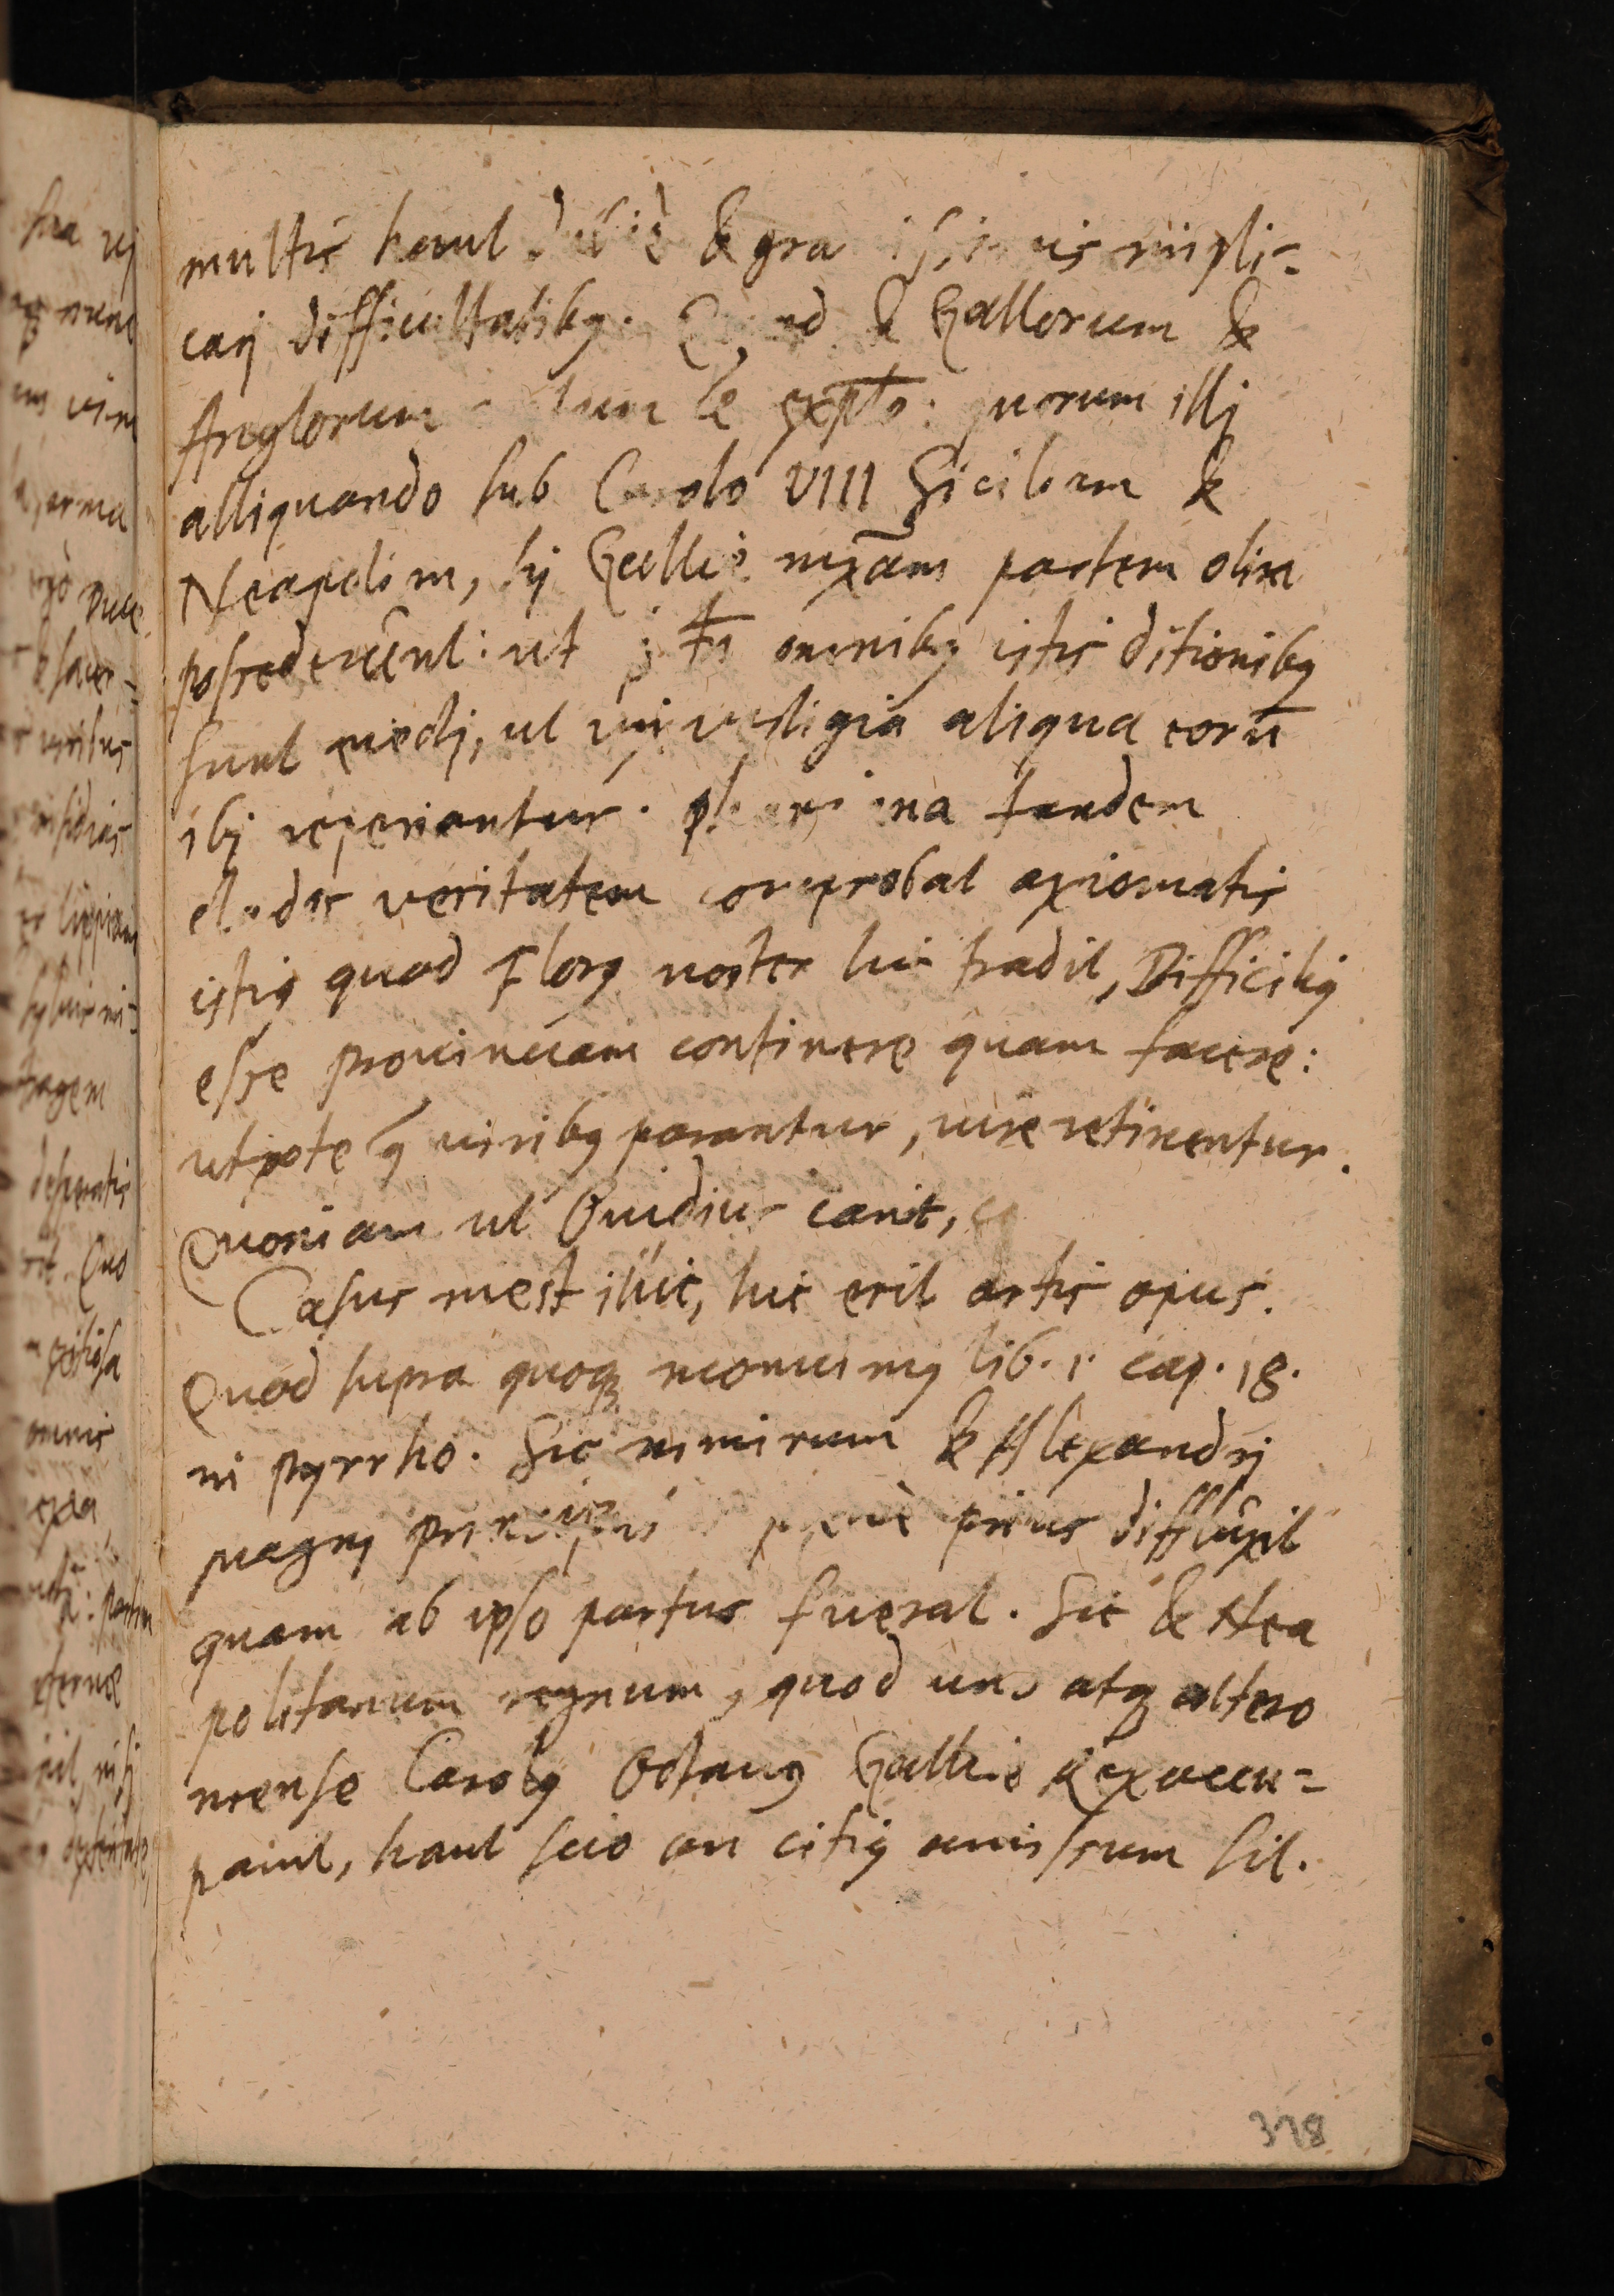 multis haud & gra
carj difficultatibꝫ. & Gallorum &
Anglorum quorum illj
alliquando sub Carolo VIII Siciliam &
Neapolim, hj Galliæ mx̄am partem olim
possederûnt: ut omnibꝫ istis ditionibꝫ
sunt eiectj, ut vix vestigia aliqua eorū
ibj reperiantur. tandem
clades veritatem comprobat axiomatis
istiꝫ quod Florꝫ noster hic tradit, Difficiliꝫ
esse prouinciam continere quam facere:
utpote q̄ viribꝫ parantur, iure retinentur.
Quoniam ut Ouidius canit,
Casus inest illic, hic erit artis opus.
Quod supra quoqꝫ monuimꝫ lib. 1. cap. 18.
in pyrrho. Sic nimirum & Alexandrj
magnj prius difflûxit
quam ab ipso partus fuerat. Sic & Nea
politanum regnum, quod uno atqꝫ altero
mense Carolꝫ Octauꝫ Galliæ Rex occu=
pauit, haut scio an citiꝫ amissum sit.
378